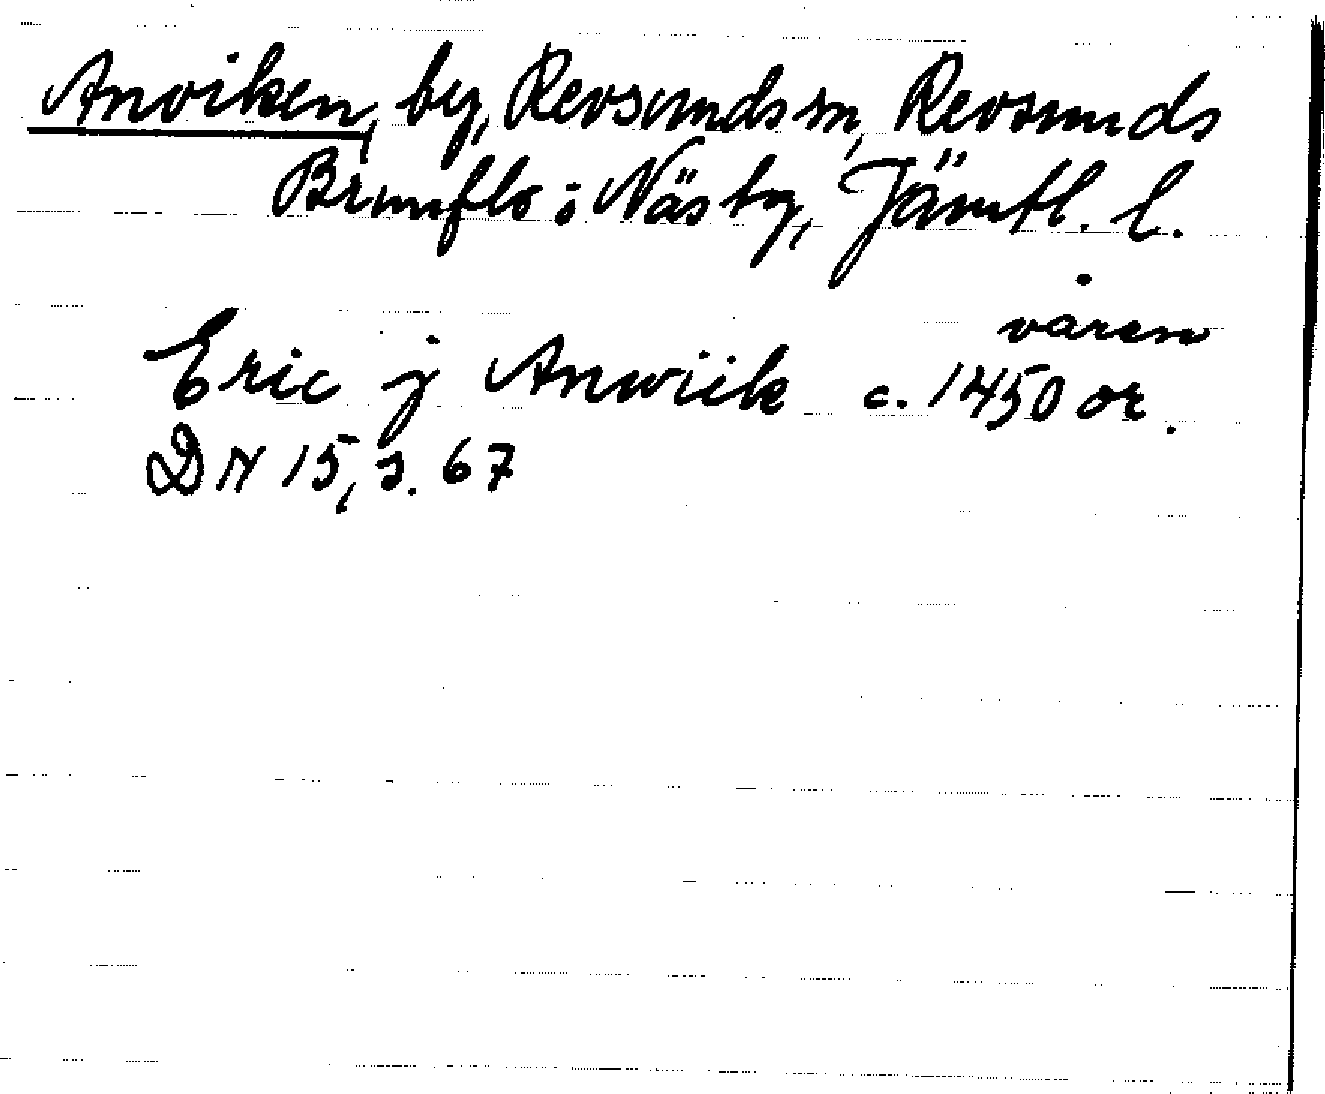 Anviken, by, Revsunds sn, Revsunds
Brunflo o Näs tg, Jämtl. l.
våren
Eric j Anwiik c. 1450 or.
DN 15, s. 67